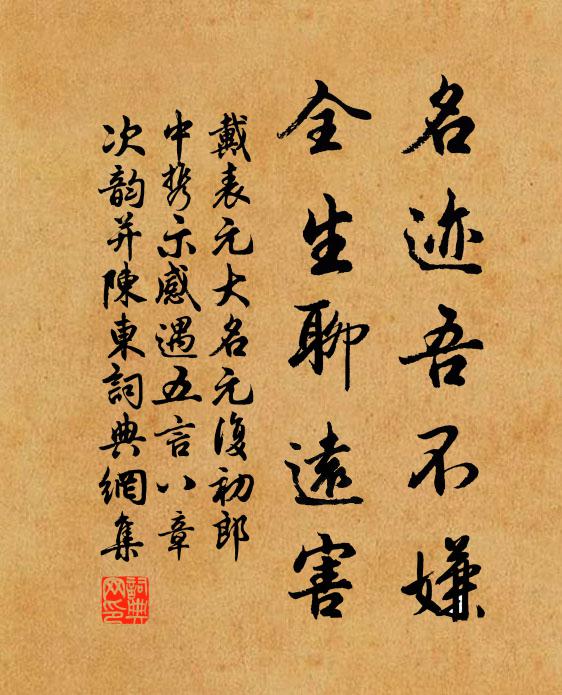 名迹吾不嫌
全生聊遠害
戴表元大名元復初郎
中携示感遇五言八章
次韵并陳東詞典網集
詞典网印